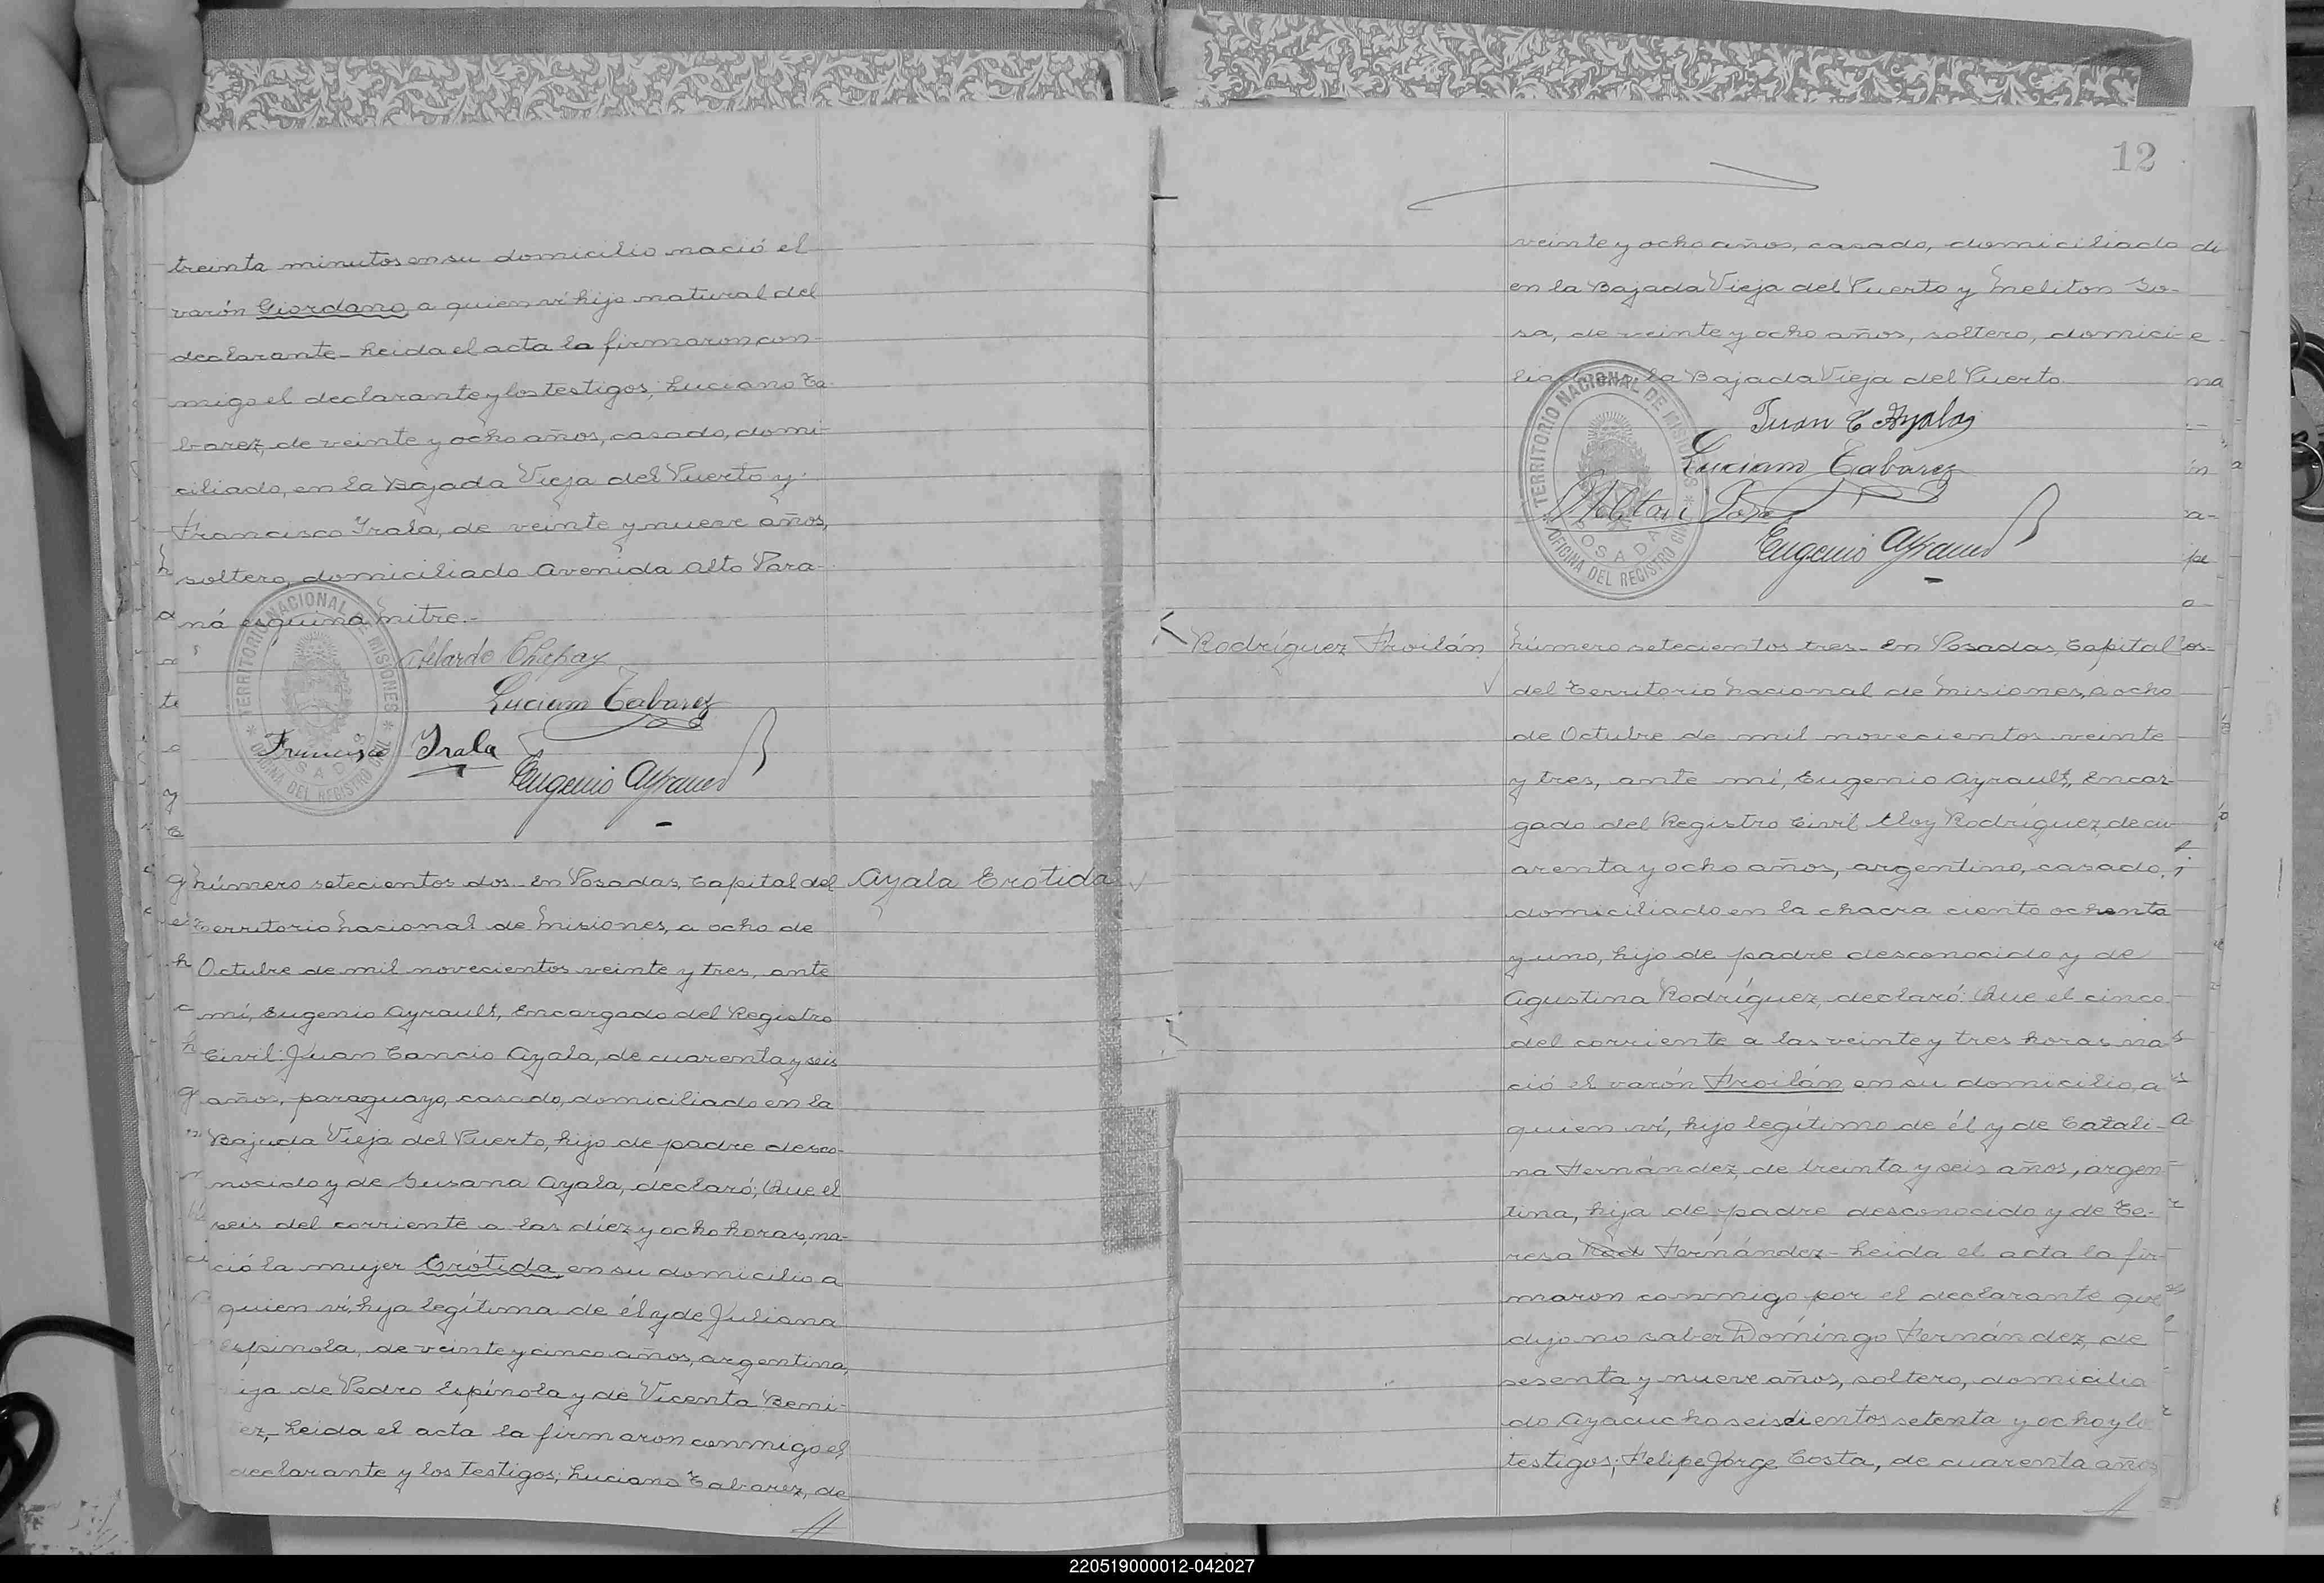 treinta minutos en su domicilio nació el
varón Giordano a quien ví hijo natural del
declarante - Leida el acta la firmaron con-
migo el declarante y los testigos; Luciano Ta-
barez, de veinte y ocho años, casado, domi-
ciliado, en la Bajada Vieja del Puerto y
Francisco Irala, de veinte y nueve años,
soltero, domiciliado Avenida Alto Para-
ná esquina Mitre.-
TERRITORIO NACIONAL DE MISIONES
OFICINA DEL REGISTRO CIVIL
POSADAS
Abelardo Chapay
Luciano Tabarez
Francisco Irala
Eugenio Ayrault
Número setecientos dos - En Posadas, Capital del
Ayala Erotida
Territorio Nacional de Misiones, a ocho de
Octubre de mil novecientos veinte y tres, ante
mí, Eugenio Ayrault, Encargado del Registro
Civil: Juan Cancio Ayala, de cuarenta y seis
años, paraguayo, casado, domiciliado en la
Bajada Vieja del Puerto, hijo de padre desco-
nocido y de Susana Ayala, declaró; Que el
seis del corriente a las diez y ocho horas, na-
ció la mujer Erótida en su domicilio a
quien ví, hija legítima de él y de Juliana
Espínola, de veinte y cinco años, argentina,
ija de Pedro Espínola y de Vicenta Beni-
ez, Leida el acta la firmaron conmigo el
declarante y los testigos; Luciano Tabarez, de
12
veinte y ocho años, casado, domiciliado
en la Bajada Vieja del Puerto y Meliton So-
sa, de veinte y ocho años, soltero, domici-
liado la Bajada Vieja del Puerto.
TERRITORIO NACIONAL DE MISIONES
OFICINA DEL REGISTRO CIVIL
POSADAS
Juan C Ayala
Luciano Tabarez
Eugenio Ayrault
Rodríguez Froilán
Número setecientos tres - En Posadas, Capital
del Territorio Nacional de Misiones, a ocho
de Octubre de mil novecientos veinte
y tres, ante mí, Eugenio Ayrault, Encar-
gado del Registro Civil Eloy Rodríguez, de cu-
arenta y ocho años, argentino, casado,
domiciliado en la chacra ciento ochenta
y uno, hijo de padre desconocido y de
Agustina Rodríguez, declaró: Que el cinco
del corriente a las veinte y tres horas na-
ció el varón Froilán en su domicilio, a
quien ví, hijo legítimo de él y de Catali-
na Hernández, de treinta y seis años, argen-
tina, hija de padre desconocido y de Te-
resa Rod Hernández - Leida el acta la fir-
maron conmigo por el declarante que
dijo no saber Domingo Hernández, de
sesenta y nueve años, soltero, domicilia
do Ayacucho seiscientos setenta y ocho y lo
testigos; Felipe Jorge Costa, de cuarenta años
220519000012-042027